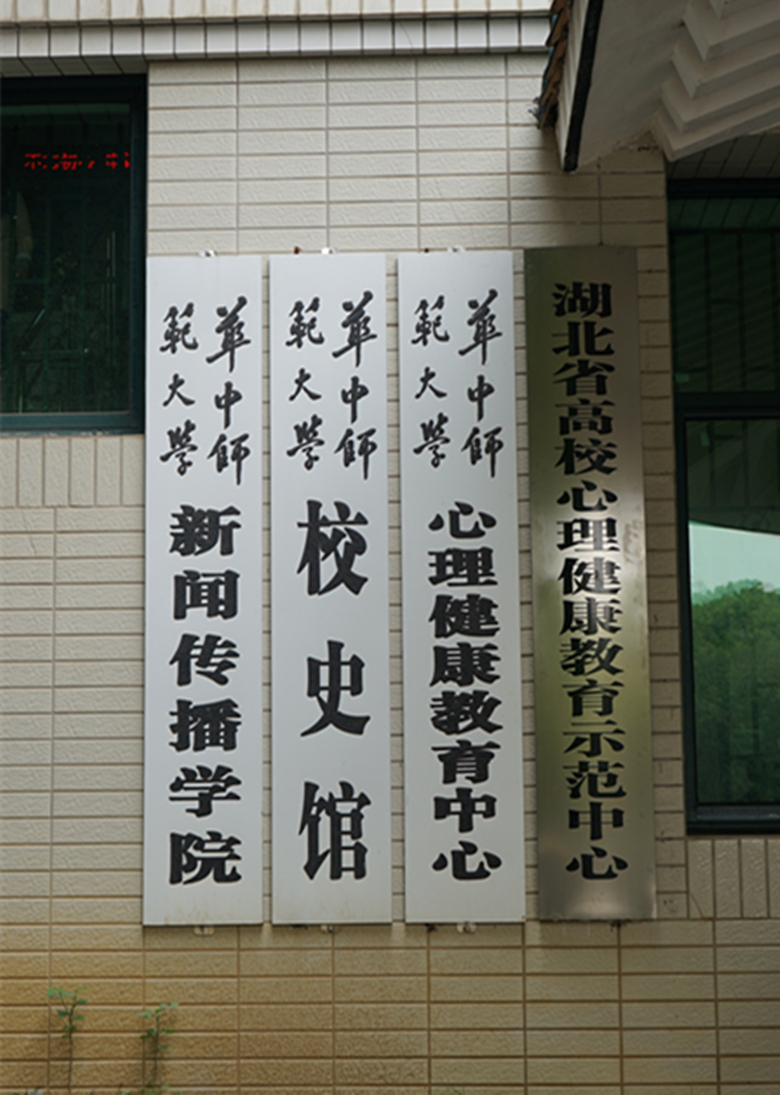 華中師範大學
新闻传播学院
華中師範大學
校史馆
華中師範大學
心理健康教育中心
湖北省高校心理健康教育示范中心